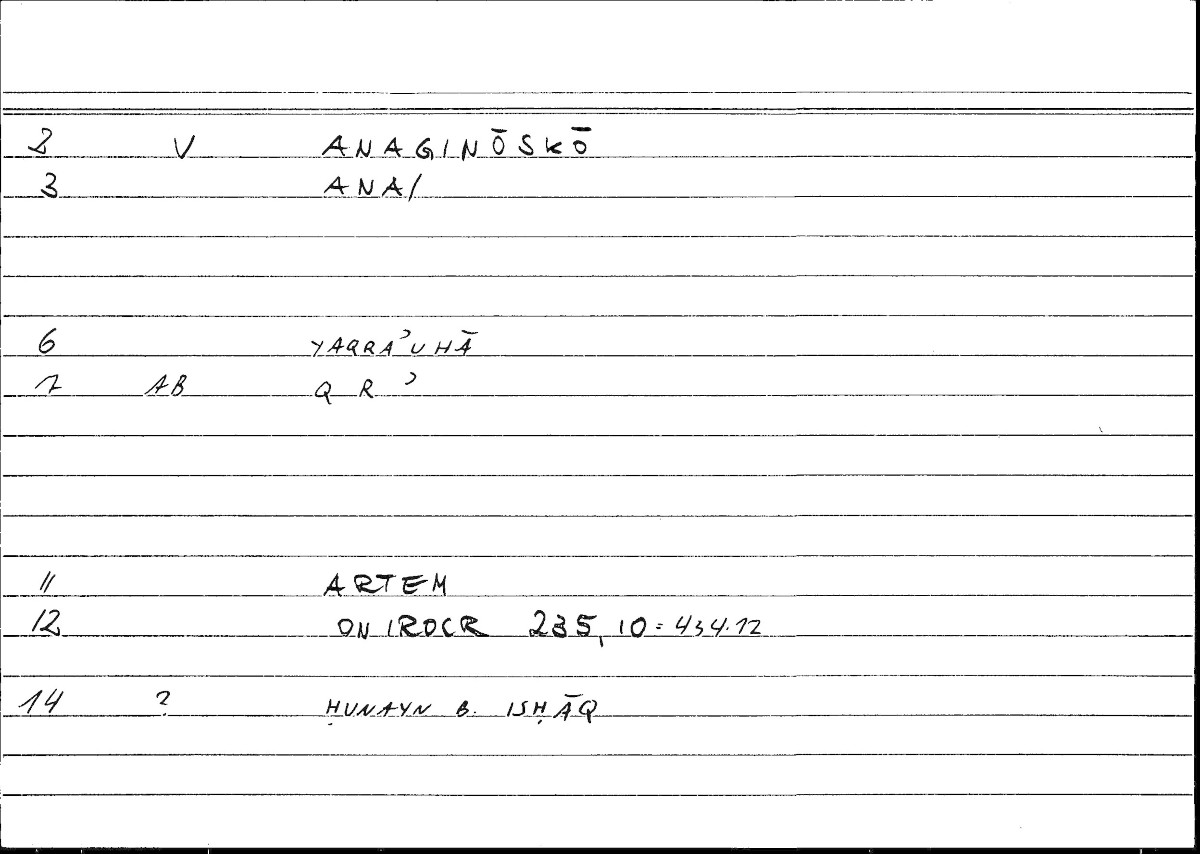 2 V ANAGINŌSKŌ
3 ANA/
6 YAQRAʾUHĀ
7 AB Q R ʾ
11 ARTEM
12 ONIROCR 235,10=434.12
14 ? ḤUNAYN B. ISḤĀQ